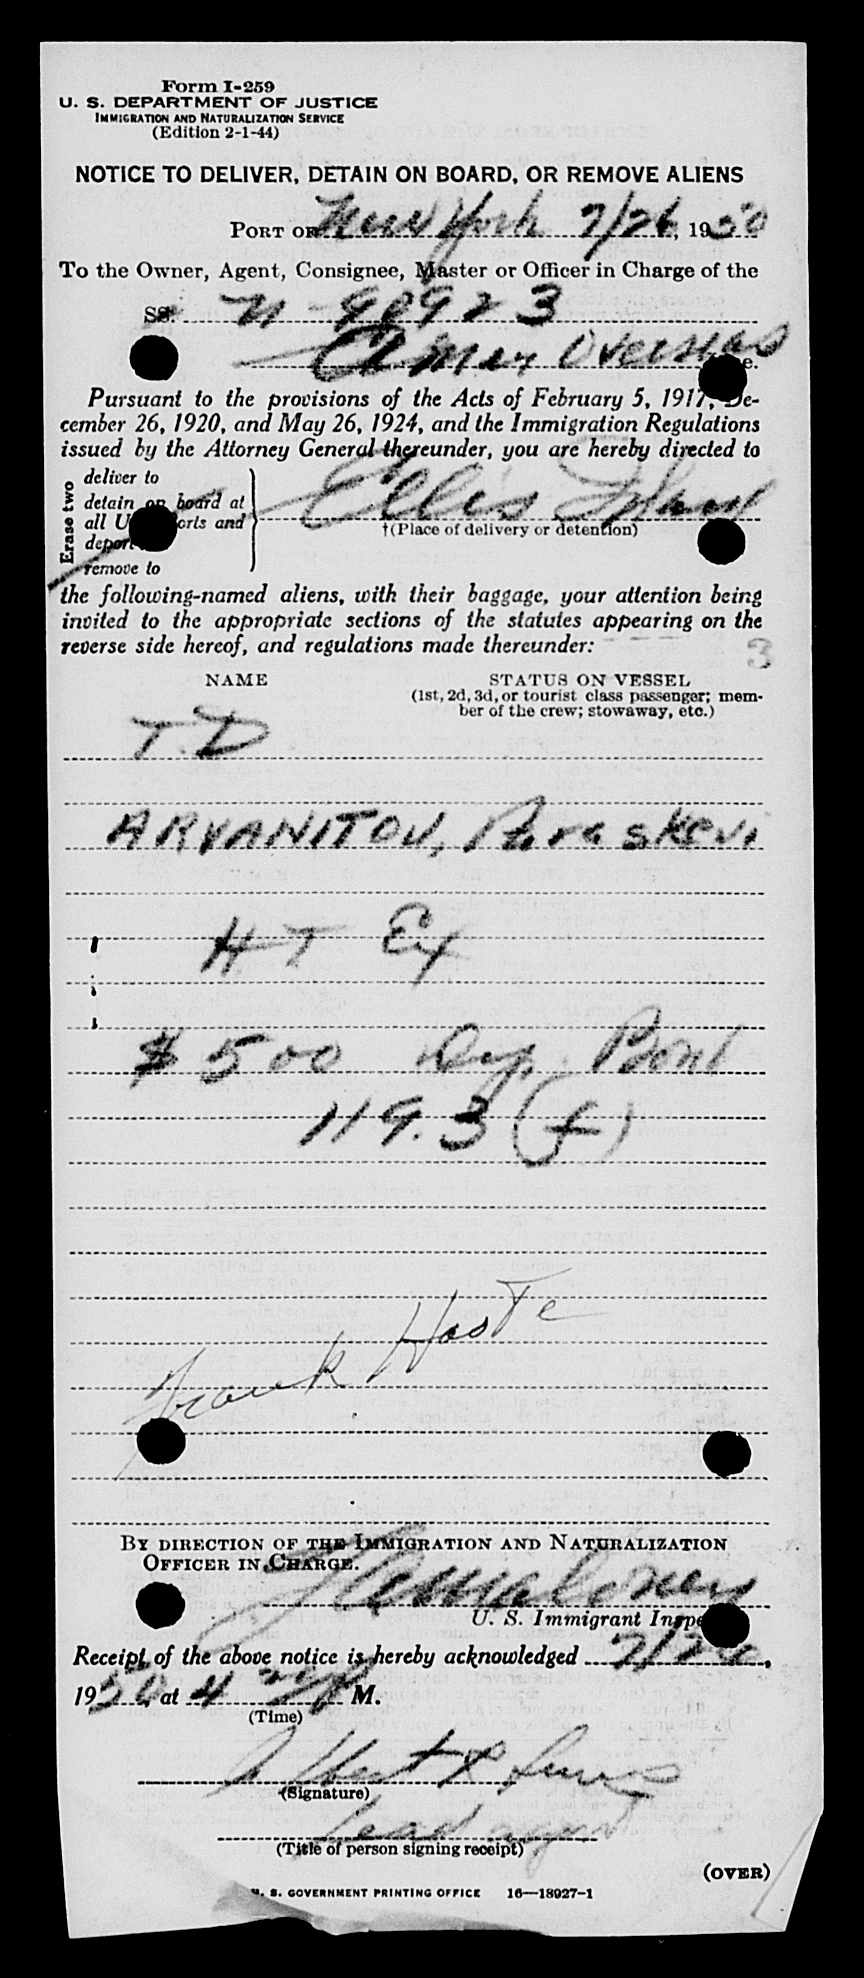 Form I-259
U. S. DEPARTMENT OF JUSTICE
IMMIGRATION AND NATURALIZATION SERVICE
(Edition 2-1-44)
NOTICE TO DELIVER, DETAIN ON BOARD, OR REMOVE ALIENS
PORT OF New York 7/26, 1950
To the Owner, Agent, Consignee, Master or Officer in Charge of the
SS. N-90923
Amer Overseas
Pursuant to the provisions of the Acts of February 5, 1917, De-
cember 26, 1920, and May 26, 1924, and the Immigration Regulations
issued by the Attorney General thereunder, you are hereby directed to
Erase two
deliver to
detain on board at
all U ports and
deport
remove to
Ellis Island
†(Place of delivery or detention)
the following-named aliens, with their baggage, your attention being
invited to the appropriate sections of the statutes appearing on the
reverse side hereof, and regulations made thereunder:
3
NAME
STATUS ON VESSEL
(1st, 2d, 3d, or tourist class passenger; mem-
ber of the crew; stowaway, etc.)
T.D
ARVANITOU, Paraskevi
HT Ex
$500 Dep. Bond
119.3 (f)
Frank Haste
BY DIRECTION OF THE IMMIGRATION AND NATURALIZATION
OFFICER IN CHARGE.
U. S. Immigrant Inspe
Receipt of the above notice is hereby acknowledged 7/26,
1950, at 4 P M.
(Time)
Albert
(Signature)
Lead agent
(Title of person signing receipt)
(OVER)
U. S. GOVERNMENT PRINTING OFFICE 16—18927-1